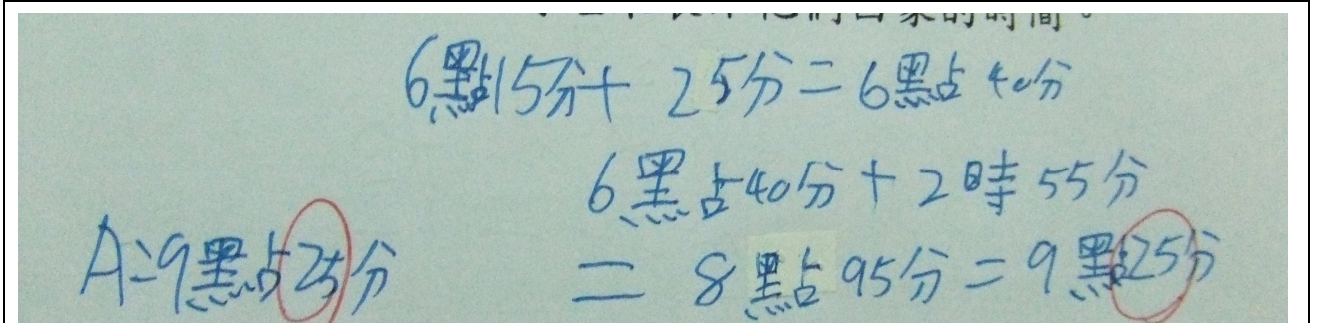 們回家的時間。
6點15分+ 25分=6點40分
6點40分+2時55分
A:9點25分
= 8點95分=9點25分